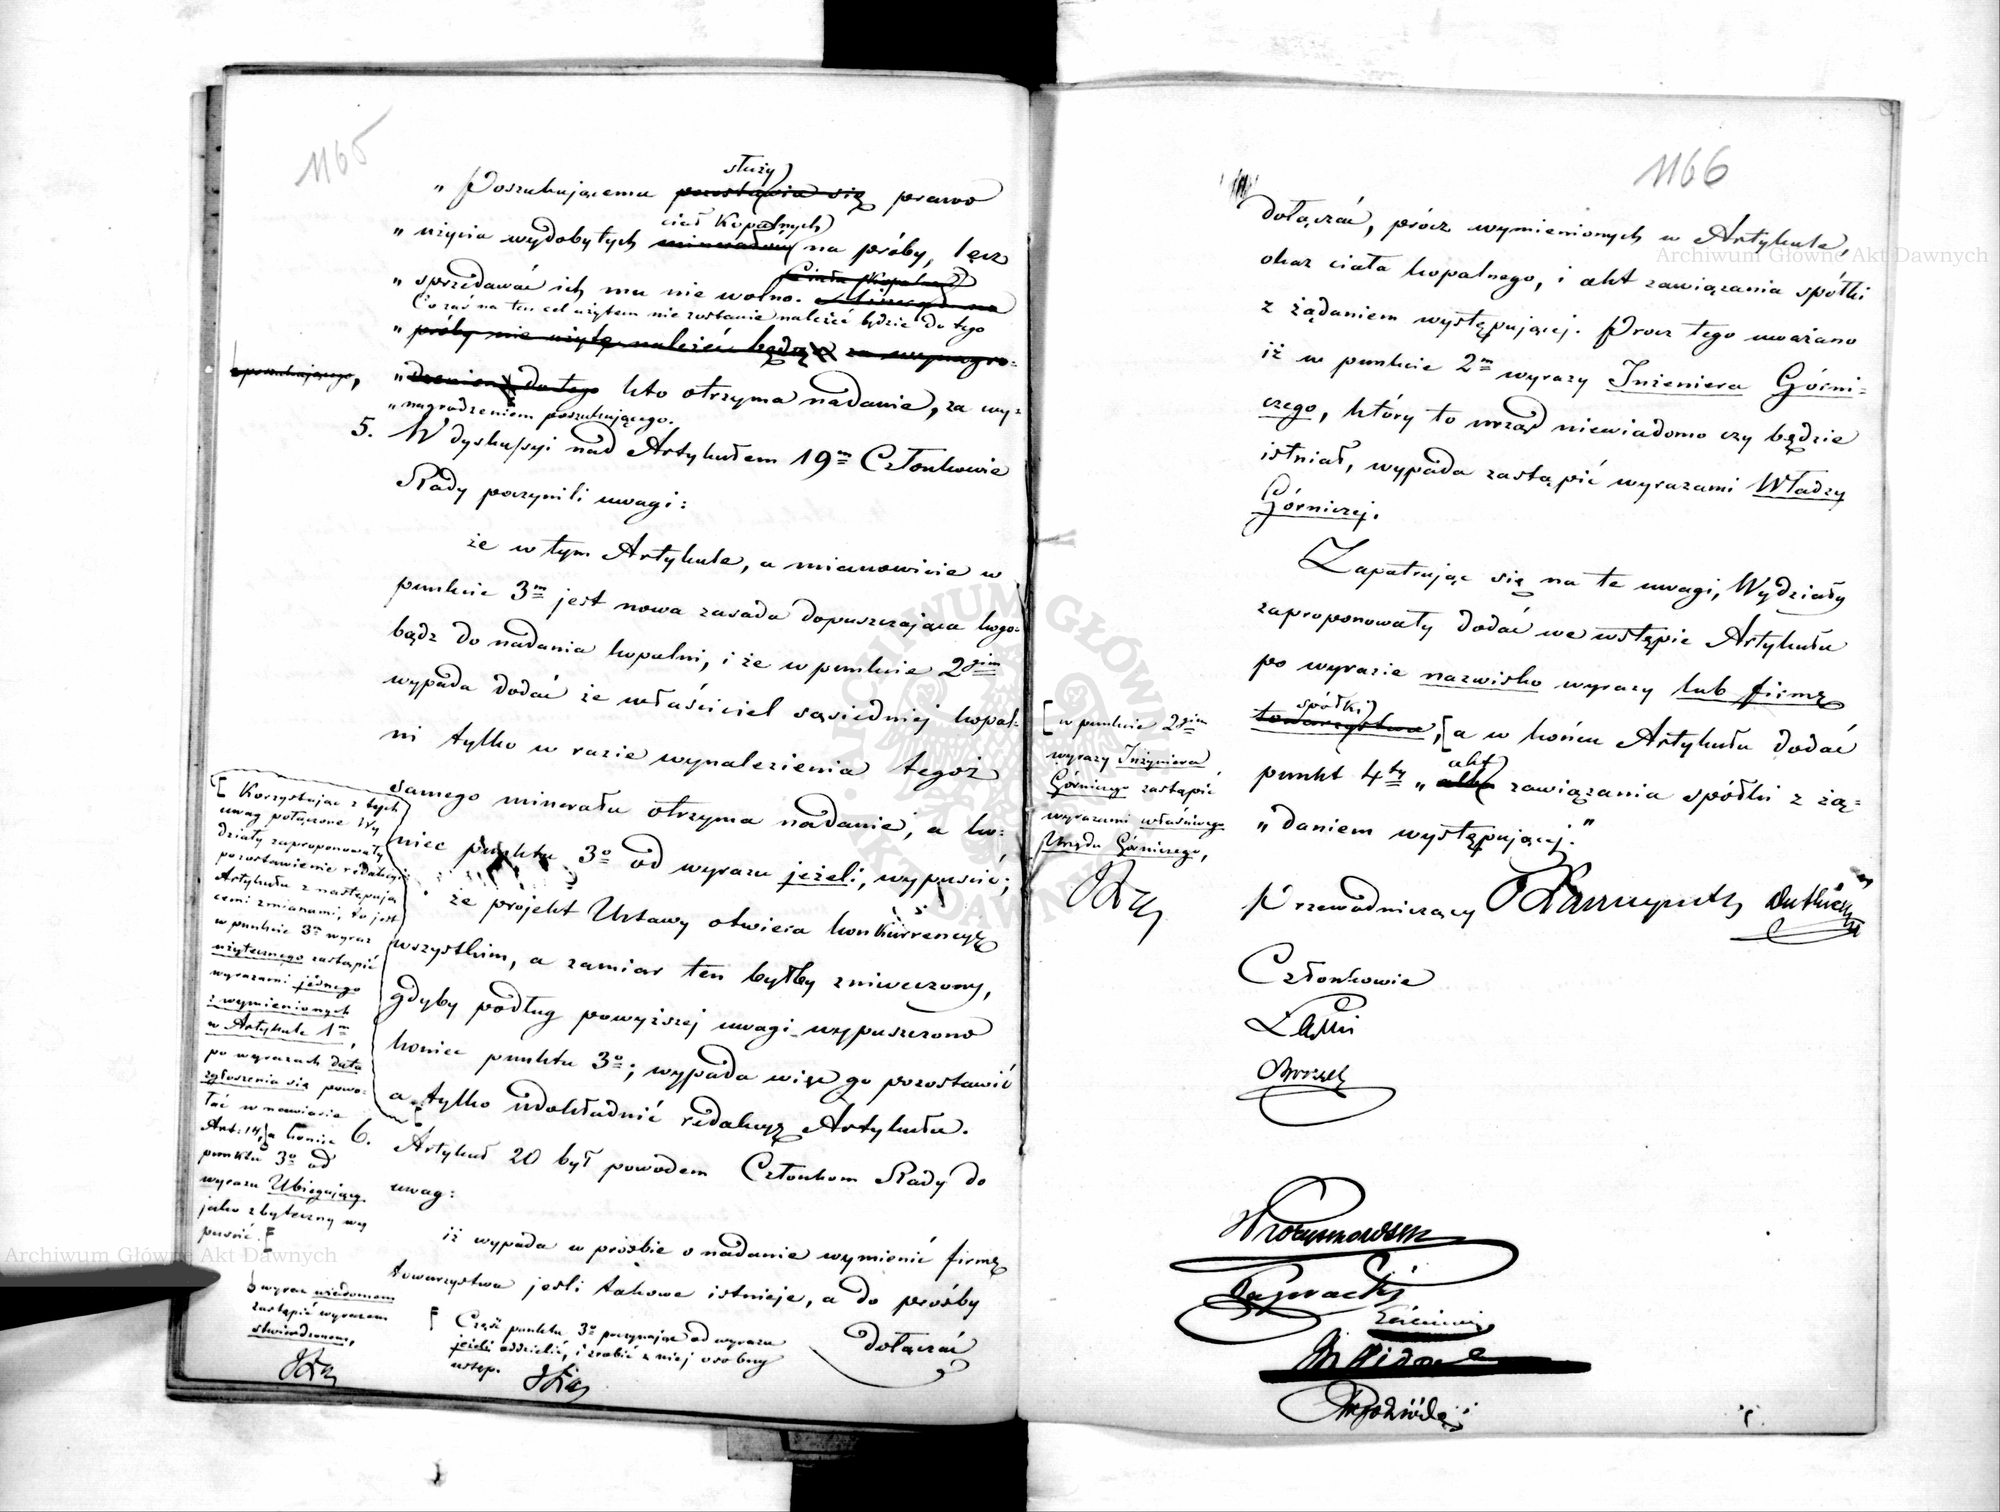 1165
służy
„ Poszukującemu pozostawia się prawo
ciał Kopalnych
„ użycia wydobytych minerałów na próby, lecz
Ciała Kopalne
„ sprzedawać ich mu nie wolno. na
Co zaś na ten cel użytem nie zostanie należeć będzie do tego
„ próby nie użyte należeć będą za wynagro-
poszukującego,
„ dzeniem do tego kto otrzyma nadanie, za wy-
„ nagrodzeniem poszukującego.
5. W dyskussyi nad Artykułem 19m Członkowie
Rady poczynili uwagi:
że w tym Artykule, a mianowicie w
punkcie 3m jest nowa zasada dopuszczająca kogo-
bądź do nadania kopalni, i że w punkcie 2gim
wypada dodać że właściciel sąsiedniej kopal-
ni tylko w razie wynalezienia tegoż
samego minerału otrzyma nadanie, a ko-
niec punktu 3o od wyrazu jeżeli, wypuścić;
że projekt Ustawy otwiera konkurrencyę
wszystkim, a zamiar ten byłby zniweczony,
gdyby podług powyższej uwagi wypuszczono
koniec punktu 3o; wypada więc go pozostawić
a tylko udokładnić redakcyę Artykułu.
[ Korzystając z tych
uwag połączone Wy
działy zaproponowały
pozostawienie redakcyi
Artykułu z następują
cemi zmianami, to jest
w punkcie 3m wyraz
użytecznego zastąpić
wyrazami jednego
z wymienionych
w Artykule 1m,
po wyrazach data
zgłoszenia się powo-
łać w nawiasie
Art: 14, a koniec
punktu 3o od
wyrazu Ubiegający
jako zbyteczny wy
puścić. [
wyraz wiadomem
zastąpić wyrazem
stwierdzonem,
6. Artykuł 20 był powodem Członkom Rady do
uwag:
iż wypada w prośbie o nadanie wymienić firmę
towarzystwa jeśli takowe istnieje, a do prośby
dołączać
[ Część punktu 3o poczynając od wyrazu
jeżeli oddzielić, i zrobić z niej osobny
ustęp.
1166
dołączać, prócz wymienionych w Artykule,
okaz ciała kopalnego, i akt zawiązania spółki
z żądaniem występującej. Prócz tego uważano
iż w punkcie 2m wyrazy Inżeniera Górni-
czego, który to urząd niewiadomo czy będzie
istniał, wypada zastąpić wyrazami Władzy
Górniczej.
Zapatrując się na te uwagi, Wydziały
zaproponowały dodać we wstępie Artykułu
po wyrazie nazwisko wyrazy lub firmę
spółki
towarzystwa, [a w końcu Artykułu dodać
akt
punkt 4ty „ albo zawiązania spółki z żą-
„ daniem występującej."
[ w punkcie 2gim
wyrazy Inżyniera
Górniczego zastąpić
wyrazami właściwego
Urzędu Górniczego,
Przewodniczący
Członkowie
Archiwum Główne Akt Dawnych
Archiwum Główne Akt Dawnych
ARCHIWUM GŁÓWNE AKT DAWNYCH